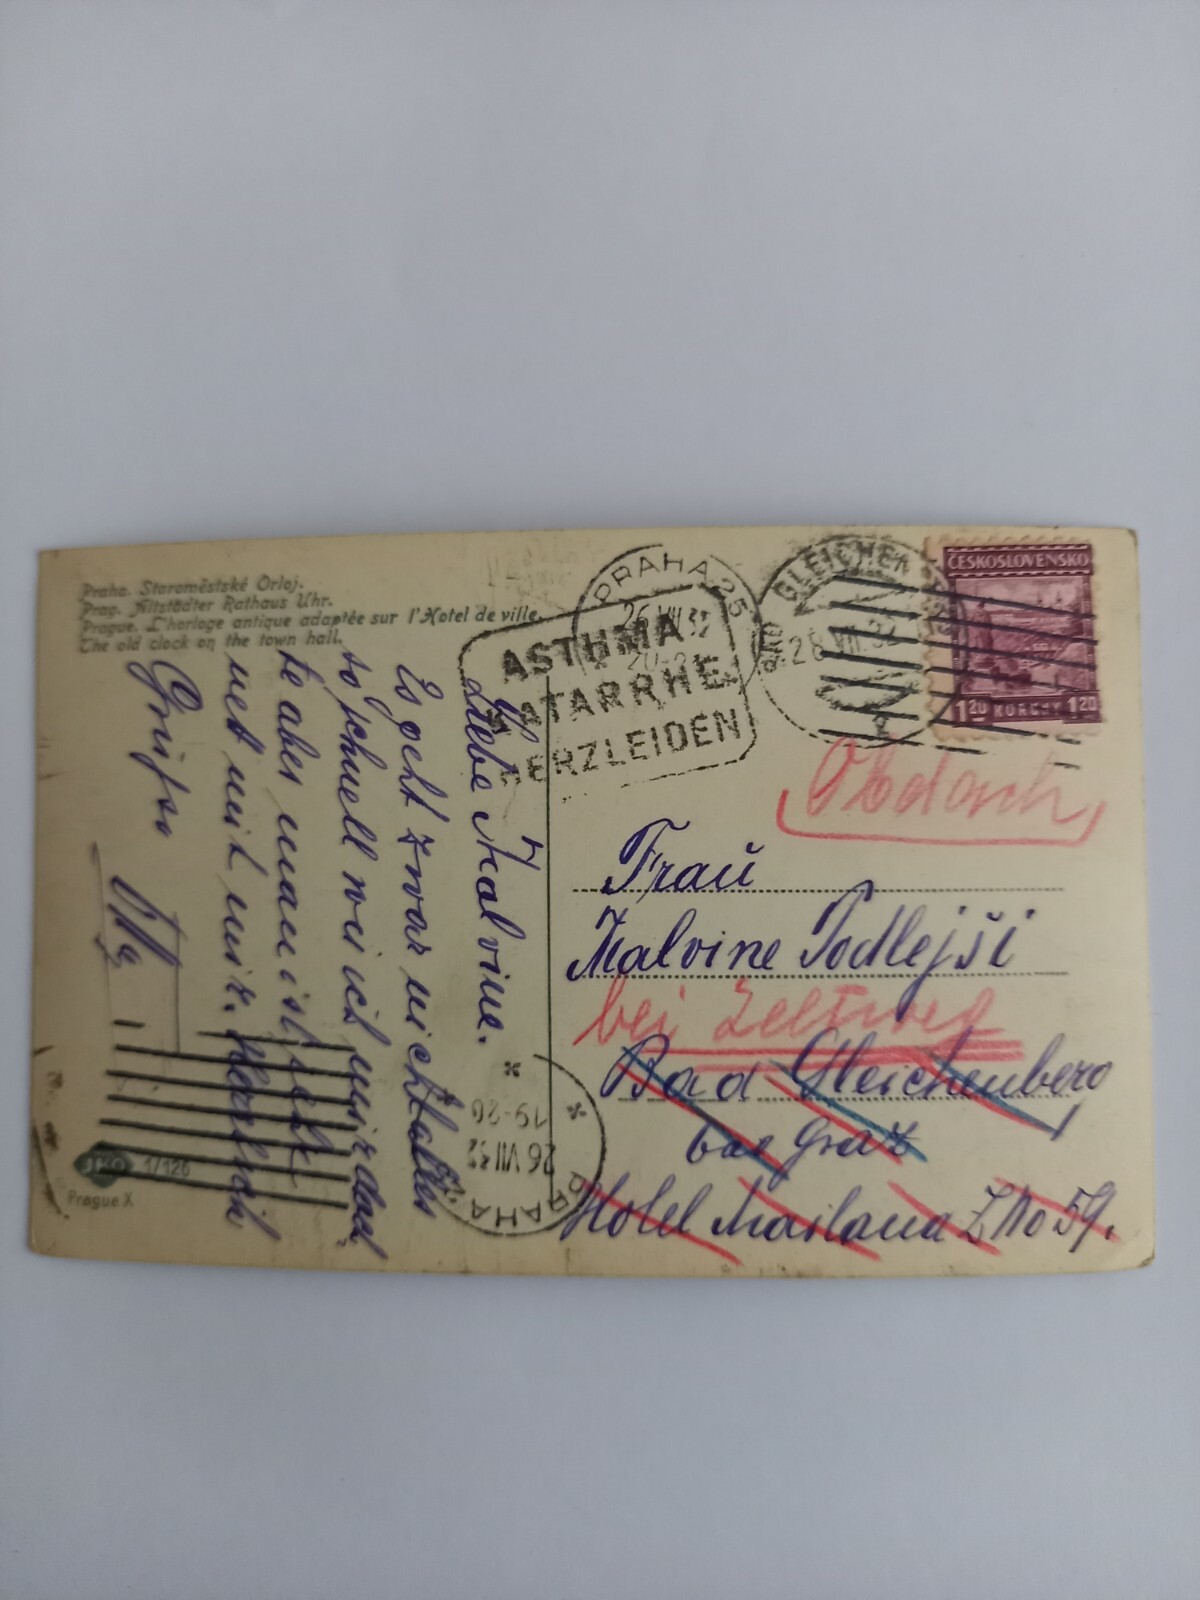 Praha. Staroměstské Orloj.
Prag. Altstädter Rathaus Uhr.
Prague. L'horloge antique adaptée sur l'Hotel de ville.
The old clock on the town hall.
Liebe Malvine.
Es geht zwar nicht alles
so schnell wie ich mir dach
te aber man ist
mit mir. Herzlich
JKO 1/126
Prague X
PRAHA 25
26 VII 32
ASTHMA
KATARRHE
HERZLEIDEN
BAD GLEICHENBERG
28 VII 32
ČESKOSLOVENSKO
1 20 KORUNY 1 20
Obdach
Frau
Malvine Podlejši
bei Zeltweg
Bad Gleichenberg
bei Graz
Hotel Mailand Z No 59.
PRAHA
26 VII 32
19-20